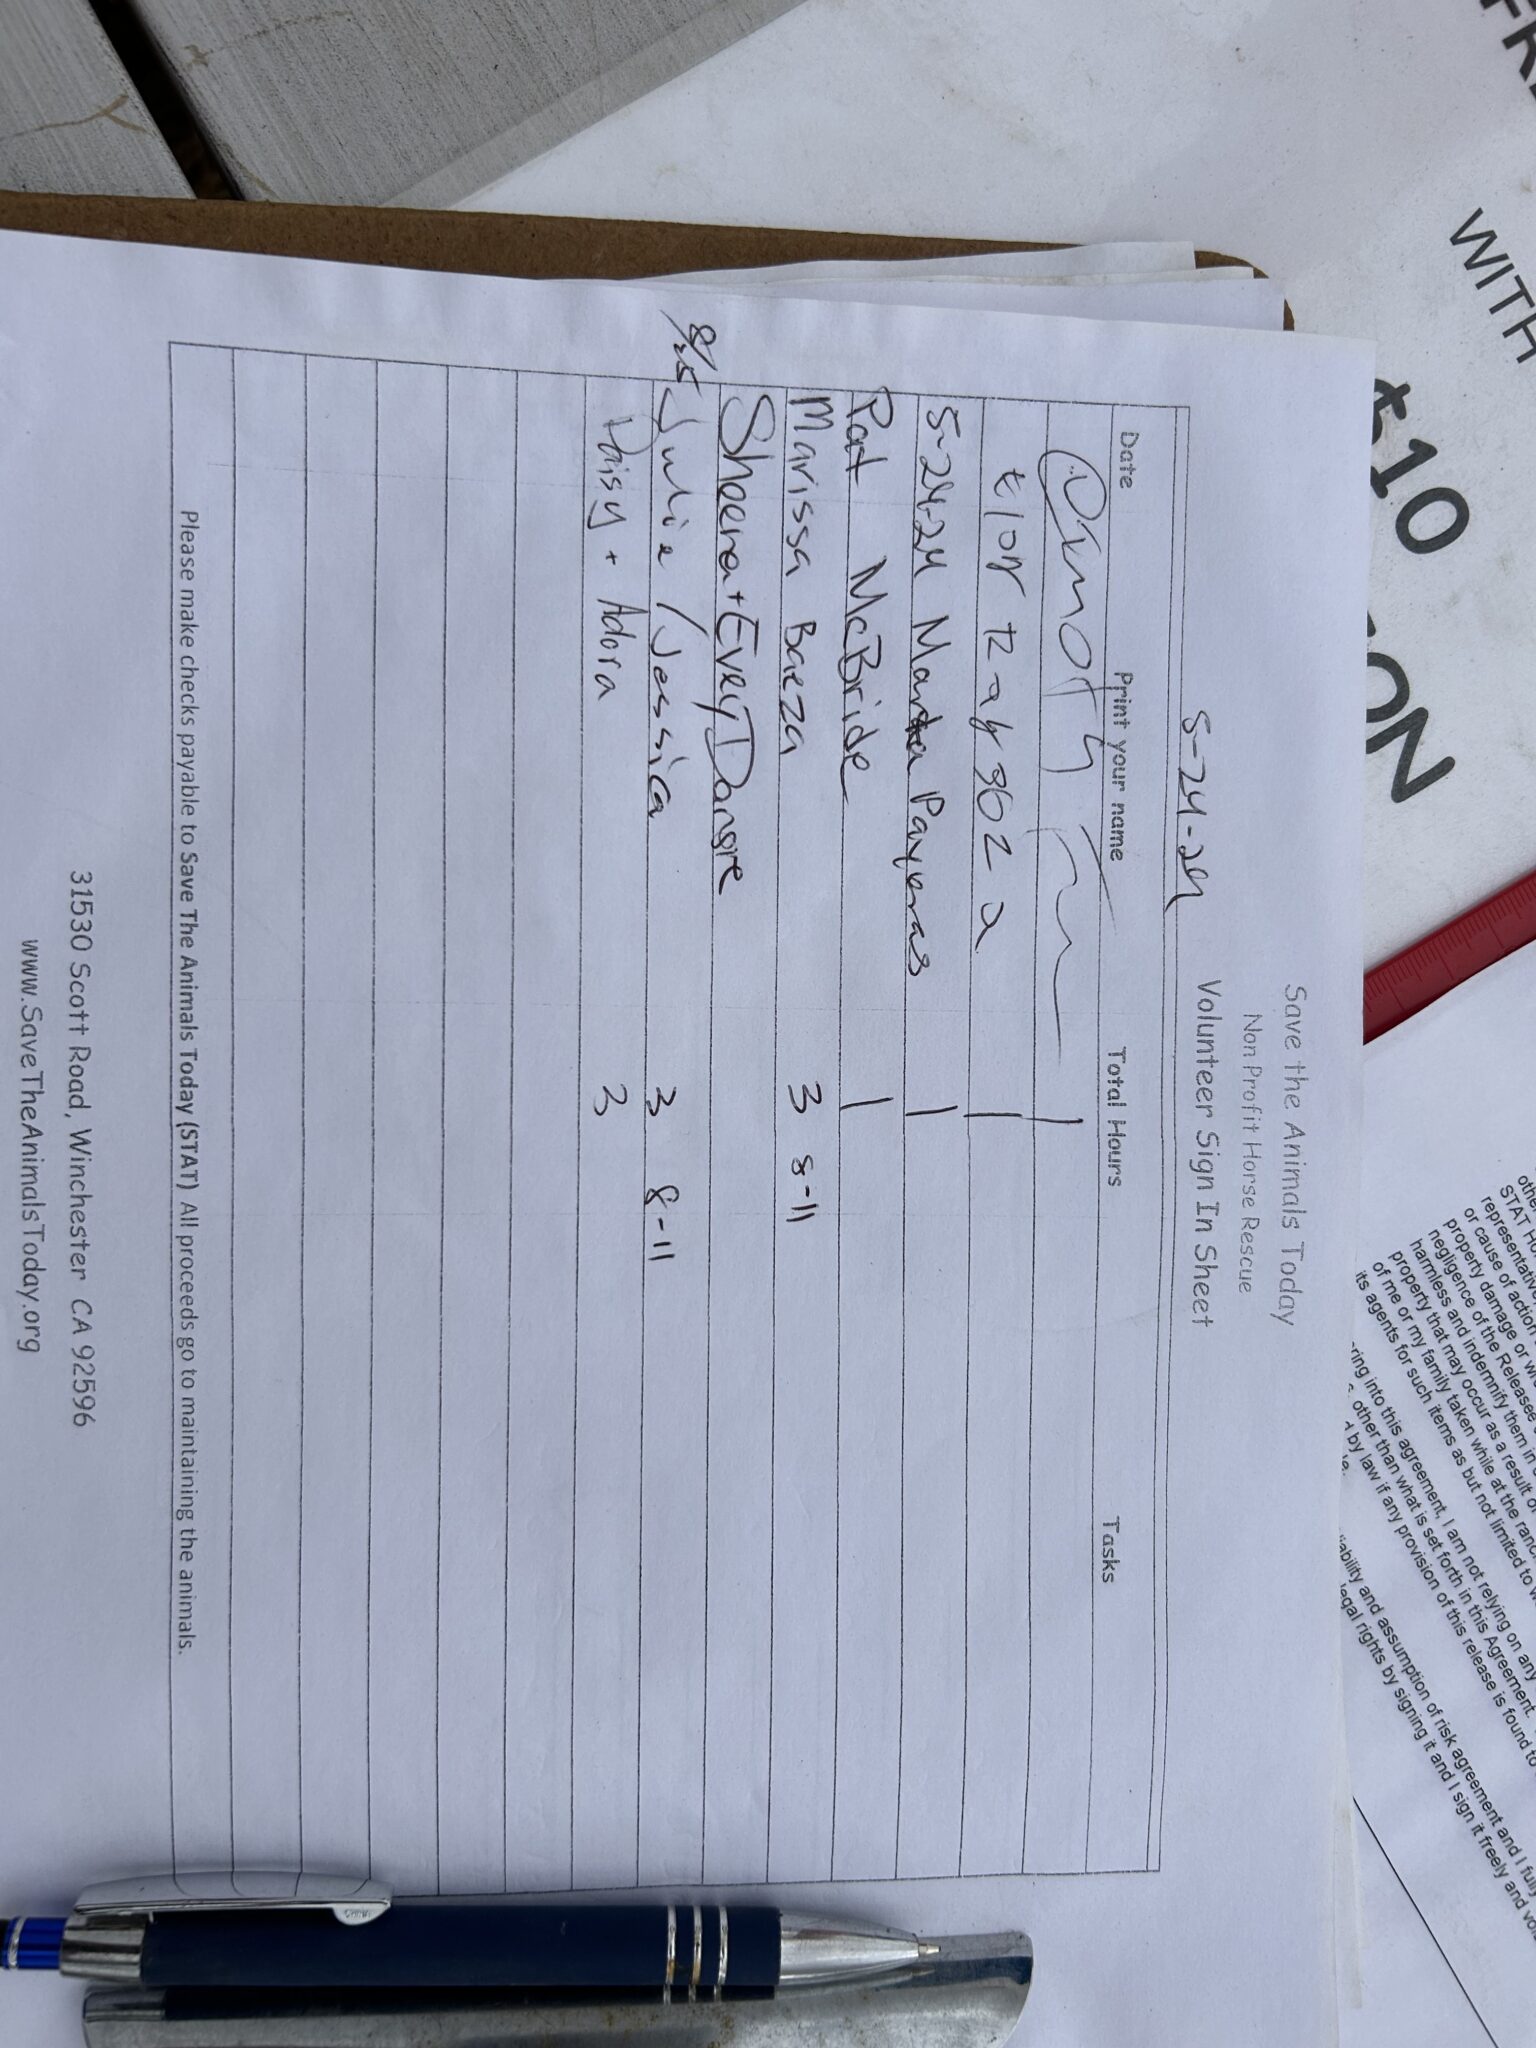 Save the Animals Today
Non Profit Horse Rescue
Volunteer Sign In Sheet
5-24-24
Date Print your name Total Hours Tasks
1
1
5-24-24 Marta Payeras 1
Pat McBride 1
Marissa Baeza 3 8-11
Sheena + Every Dansie
8/25 Julie / Jessica 3 8-11
Daisy + Adora 3
Please make checks payable to Save The Animals Today (STAT) All proceeds go to maintaining the animals.
31530 Scott Road, Winchester CA 92596
www.SaveTheAnimalsToday.org
WITH
$10
or cause of action
property damage or
negligence of the Releasees
harmless and indemnify them in
property that may occur as a result of
of me or my family taken while at the ranch
its agents for such items as but not limited to
into this agreement, I am not relying on any
other than what is set forth in this Agreement.
by law if any provision of this release is found to
and assumption of risk agreement and I fully
legal rights by signing it and I sign it freely and